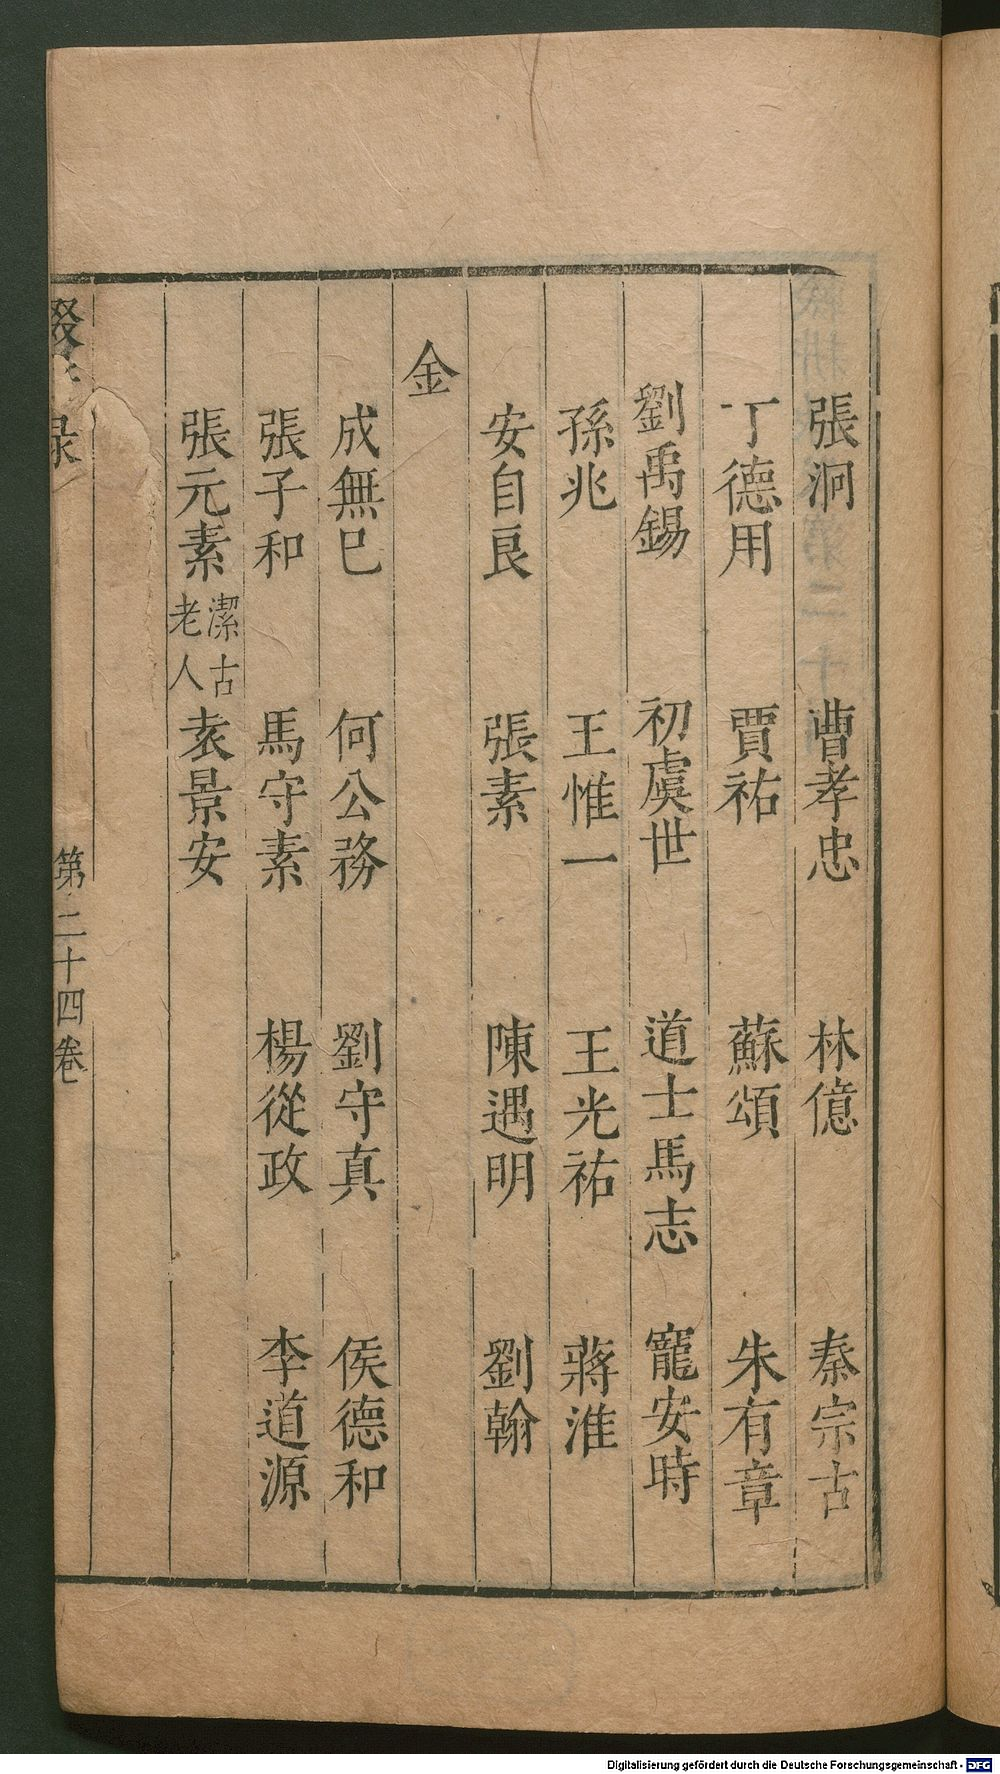 張洞 曹孝忠 林億 秦宗古
丁德用 賈祐 蘇頌 朱有章
劉禹錫 初虞世 道士馬志 寵安時
孫兆 王惟一 王光祐 蔣淮
安自良 張素 陳遇明 劉翰
金
成無巳 何公務 劉守真 侯德和
張子和 馬守素 楊從政 李道源
張元素 潔古老人 袁景安
錄
第二十四卷
Digitalisierung gefördert durch die Deutsche Forschungsgemeinschaft - DFG